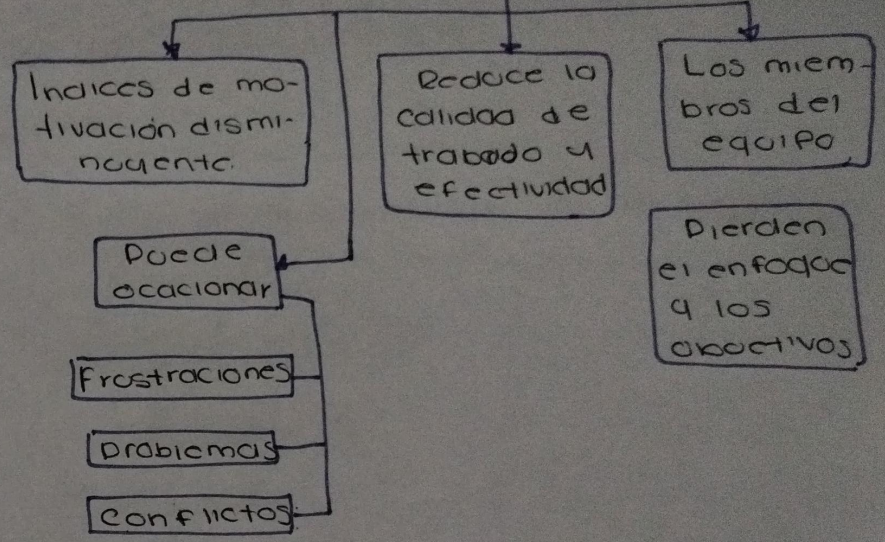 Indices de mo-
tivación dismi-
nuyente.
Reduce la
calidad de
trabado y
efectividad
Los miem-
bros del
equipo
Pierden
el enfoque
y los
oboctivos
Puede
ocacionar
Frustraciones
Problemas
Conflictos